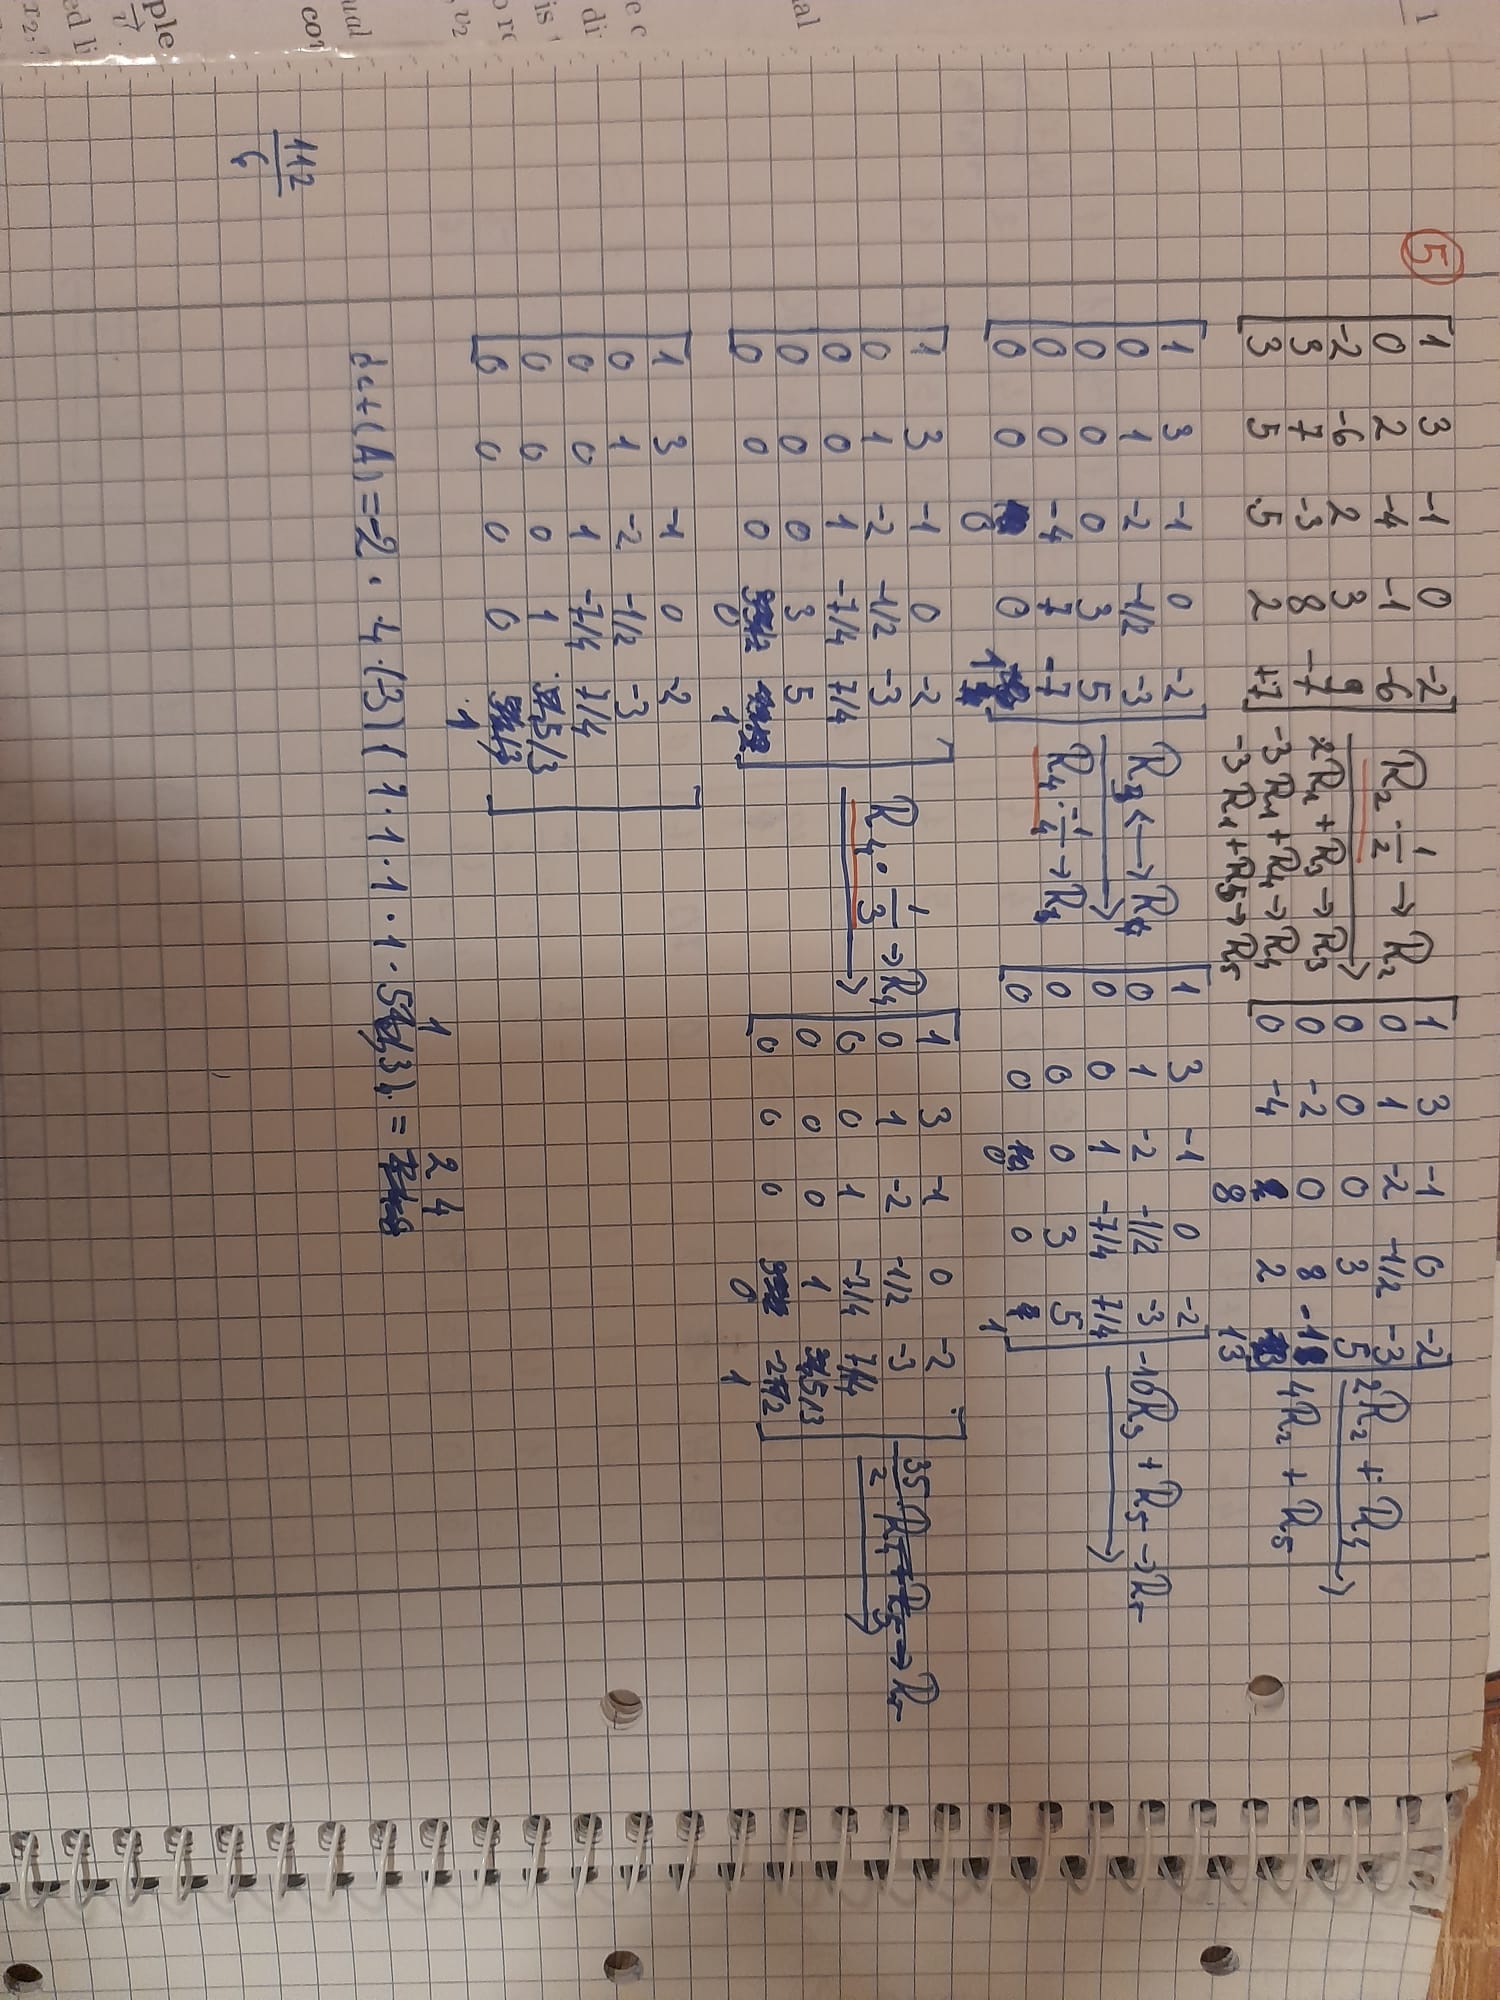 5
1 3 -1 0 -2
0 2 -4 -1 -6
-2 -6 2 3 9
3 7 -3 8 -7
3 5 5 2 +7
R2 · 1/2 → R2
2R1 + R3 → R3
-3R1 + R4 → R4
-3R1 + R5 → R5
1 3 -1 0 -2
0 1 -2 -1/2 -3
0 0 0 3 5
0 -2 0 8 -1
0 -4 2
8 13
2R2 + R4
4R2 + R5
1 3 -1 0 -2
0 1 -2 -1/2 -3
0 0 0 3 5
0 0 -4 7 -7
0 0 0
0 1
R3 ↔ R4
R4 · -1/4 → R3
1 3 -1 0 -2
0 1 -2 -1/2 -3
0 0 1 -7/4 7/4
0 0 0 3 5
0 0 0
0 1
-10R3 + R5 → R5
1 3 -1 0 -2
0 1 -2 -1/2 -3
0 0 1 -7/4 7/4
0 0 0 3 5
0 0 0
0 1
R4 · 1/3 → R4
1 3 -1 0 -2
0 1 -2 -1/2 -3
0 0 1 -7/4 7/4
0 0 0 1 5/3
0 0 0
0 1
35/2 R4 + R5 → R5
1 3 -1 0 -2
0 1 -2 -1/2 -3
0 0 1 -7/4 7/4
0 0 0 1 5/3
0 0 0 0
1
1 24
det(A) = -2 · 4 · (-3) (1 · 1 · 1 · 1 · =
112
6
1
al
e c
di
is
o re
, v2
ual
con
ple
v
ed li
x2,